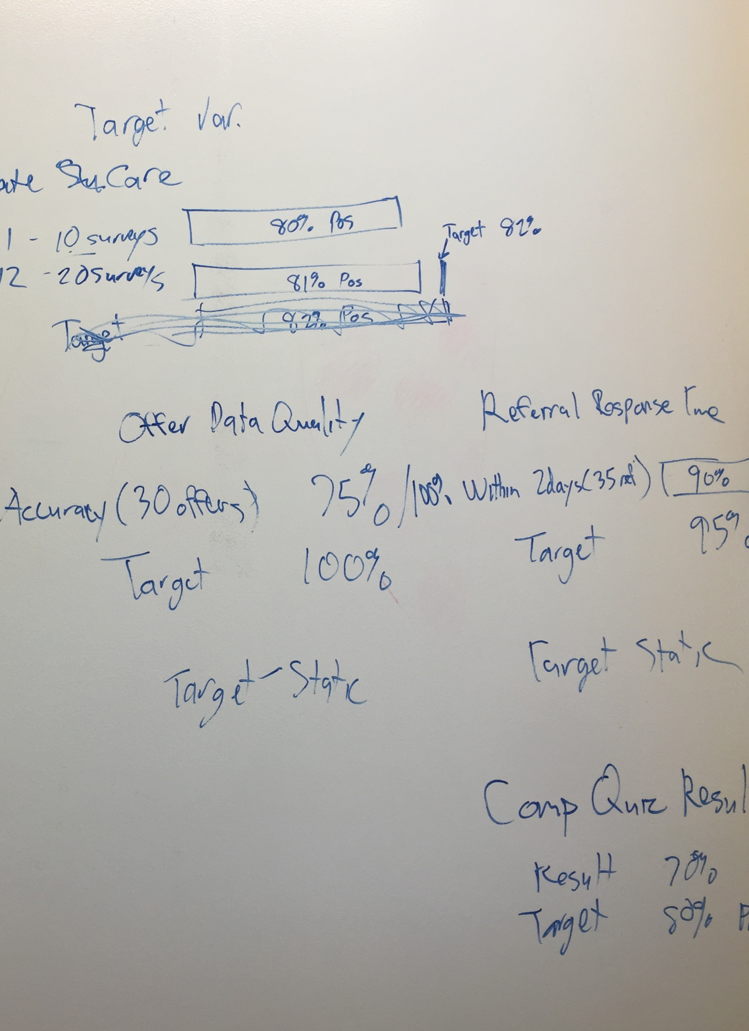 Target Var.
ate Su. Care
1 - 10 surveys 80% Pos
Target 82%
12 - 20 surveys 81% Pos
Target 82% Pos
Offer Data Quality
Accuracy (30 offers) 75% / 100%
Target 100%
Target - Static
Referral Response Time
Within 2 days (35 ref) 90%
Target 95%
Target Static
Comp Quiz Resul
Result 70%
Target 80% P